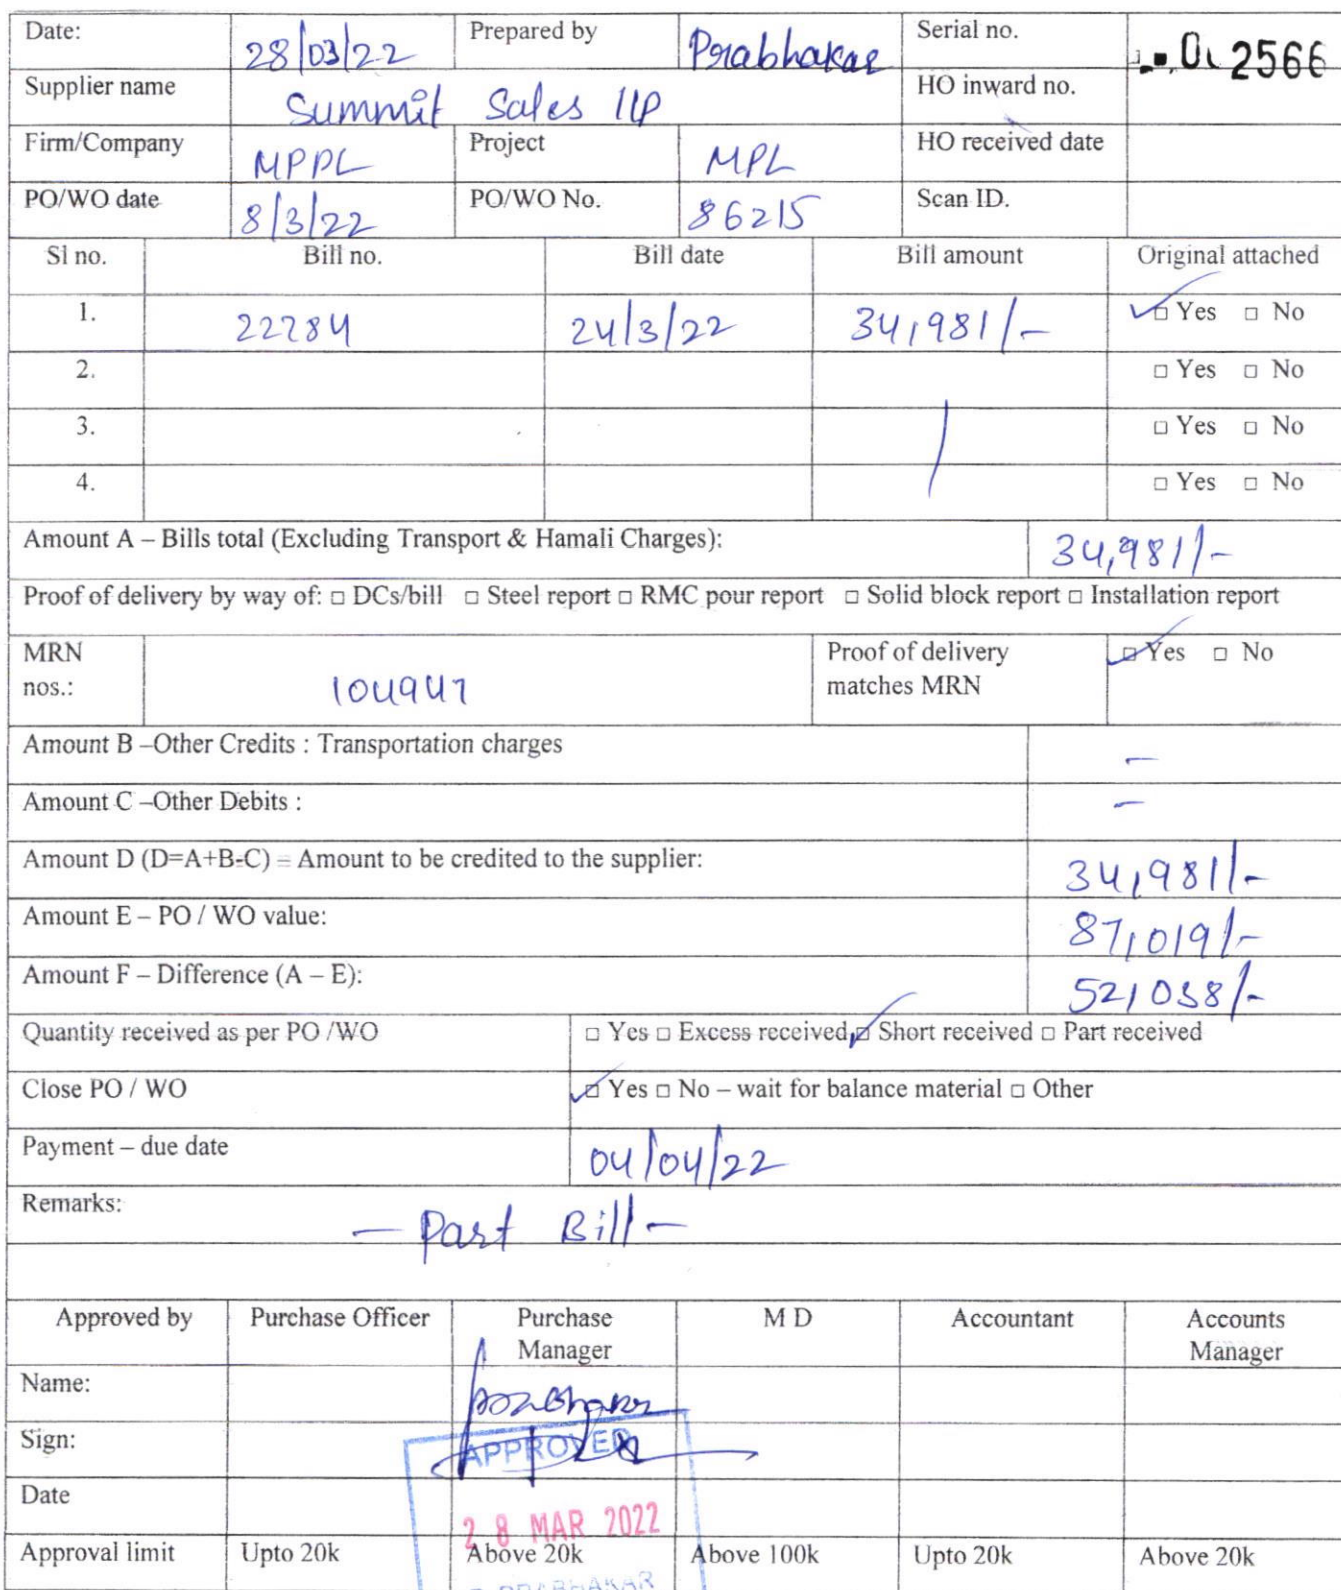 Date: 28/03/22 Prepared by Prabhakar Serial no. 2566
Supplier name Summit Sales llp HO inward no.
Firm/Company MPPL Project MPL HO received date
PO/WO date 8/3/22 PO/WO No. 86215 Scan ID.
Sl no. Bill no. Bill date Bill amount Original attached
1. 22284 24/3/22 34,981/- ✓□ Yes □ No
2. □ Yes □ No
3. □ Yes □ No
4. □ Yes □ No
Amount A – Bills total (Excluding Transport & Hamali Charges): 34,981/-
Proof of delivery by way of: □ DCs/bill □ Steel report □ RMC pour report □ Solid block report □ Installation report
MRN nos.: 104947 Proof of delivery matches MRN ✓□ Yes □ No
Amount B –Other Credits : Transportation charges –
Amount C –Other Debits : –
Amount D (D=A+B-C) = Amount to be credited to the supplier: 34,981/-
Amount E – PO / WO value: 87,019/-
Amount F – Difference (A – E): 52,038/-
Quantity received as per PO /WO □ Yes □ Excess received ✓□ Short received □ Part received
Close PO / WO ✓□ Yes □ No – wait for balance material □ Other
Payment – due date 04/04/22
Remarks: – Part Bill –
Approved by Purchase Officer Purchase Manager M D Accountant Accounts Manager
Name: Prabhakar
Sign: APPROVED
Date 28 MAR 2022
Approval limit Upto 20k Above 20k Above 100k Upto 20k Above 20k
PRABHAKAR